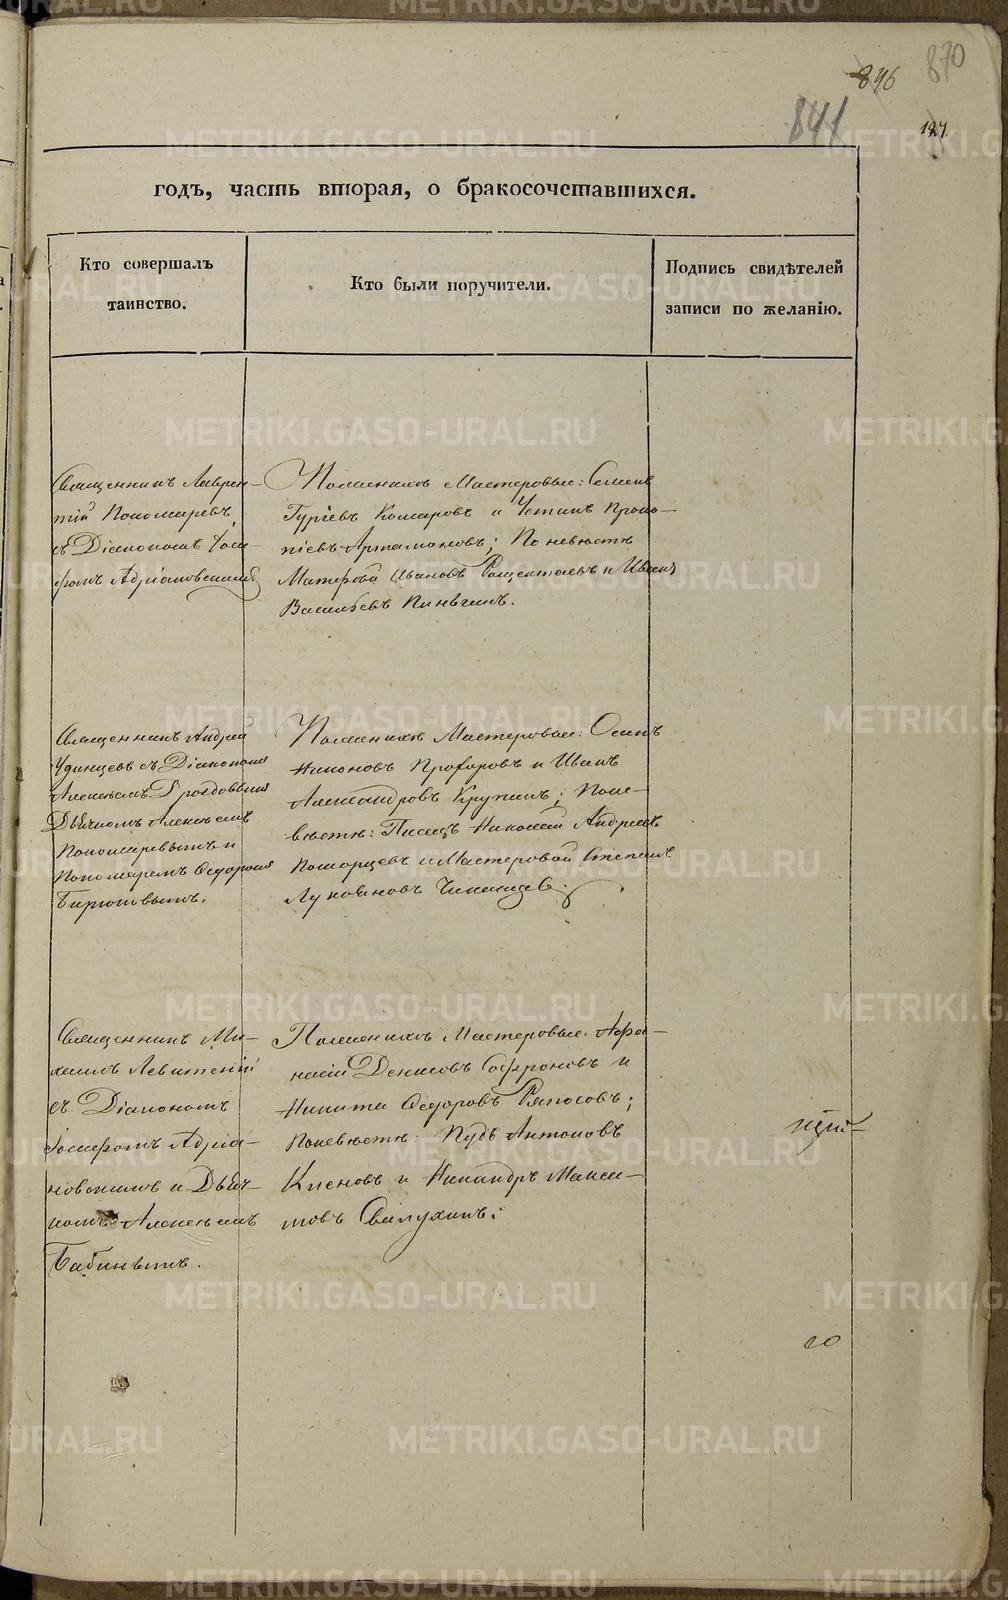 846
870
841
годъ, часть вторая, о бракосочетавшихся.
Кто совершалъ таинство.
Кто были поручители.
Подпись свидѣтелей записи по желанію.
Священникъ Лаврен-
тій Пономаревъ
съ Діакономъ Іоси-
фомъ Адріановскимъ
По женихѣ Мастеровые: Семенъ
Гурьевъ Комаровъ и Устинъ Проко-
піевъ Артамоновъ; По невѣстѣ
Ивановъ и Иванъ
Васильевъ
Священникъ Андрей
Удинцевъ съ Діакономъ
Алексѣемъ Дроздовымъ
Дьячкомъ Алексѣемъ
Пономаревымъ и
Пономаремъ Ѳедоромъ
Бирюковымъ.
По женихѣ Мастеровые: Осипъ
Никоновъ Прохоровъ и Иванъ
Александровъ Крупинъ; По не-
вѣстѣ: Писецъ Николай Андреевъ
Поморцевъ и Мастеровой Степанъ
Лукояновъ
Священникъ Ми-
хаилъ Левитскій
съ Діакономъ
Іосифомъ Адріа-
новскимъ и Дьяч-
комъ Алексѣемъ
Бабинымъ.
По женихѣ Мастеровые: Афа-
насій Денисовъ Софроновъ и
Никита Ѳедоровъ Ряпосовъ;
По невѣстѣ: Пудъ Антоновъ
Кленовъ и Никандръ Макси-
мовъ Свалухинъ.
METRIKI.GASO-URAL.RU